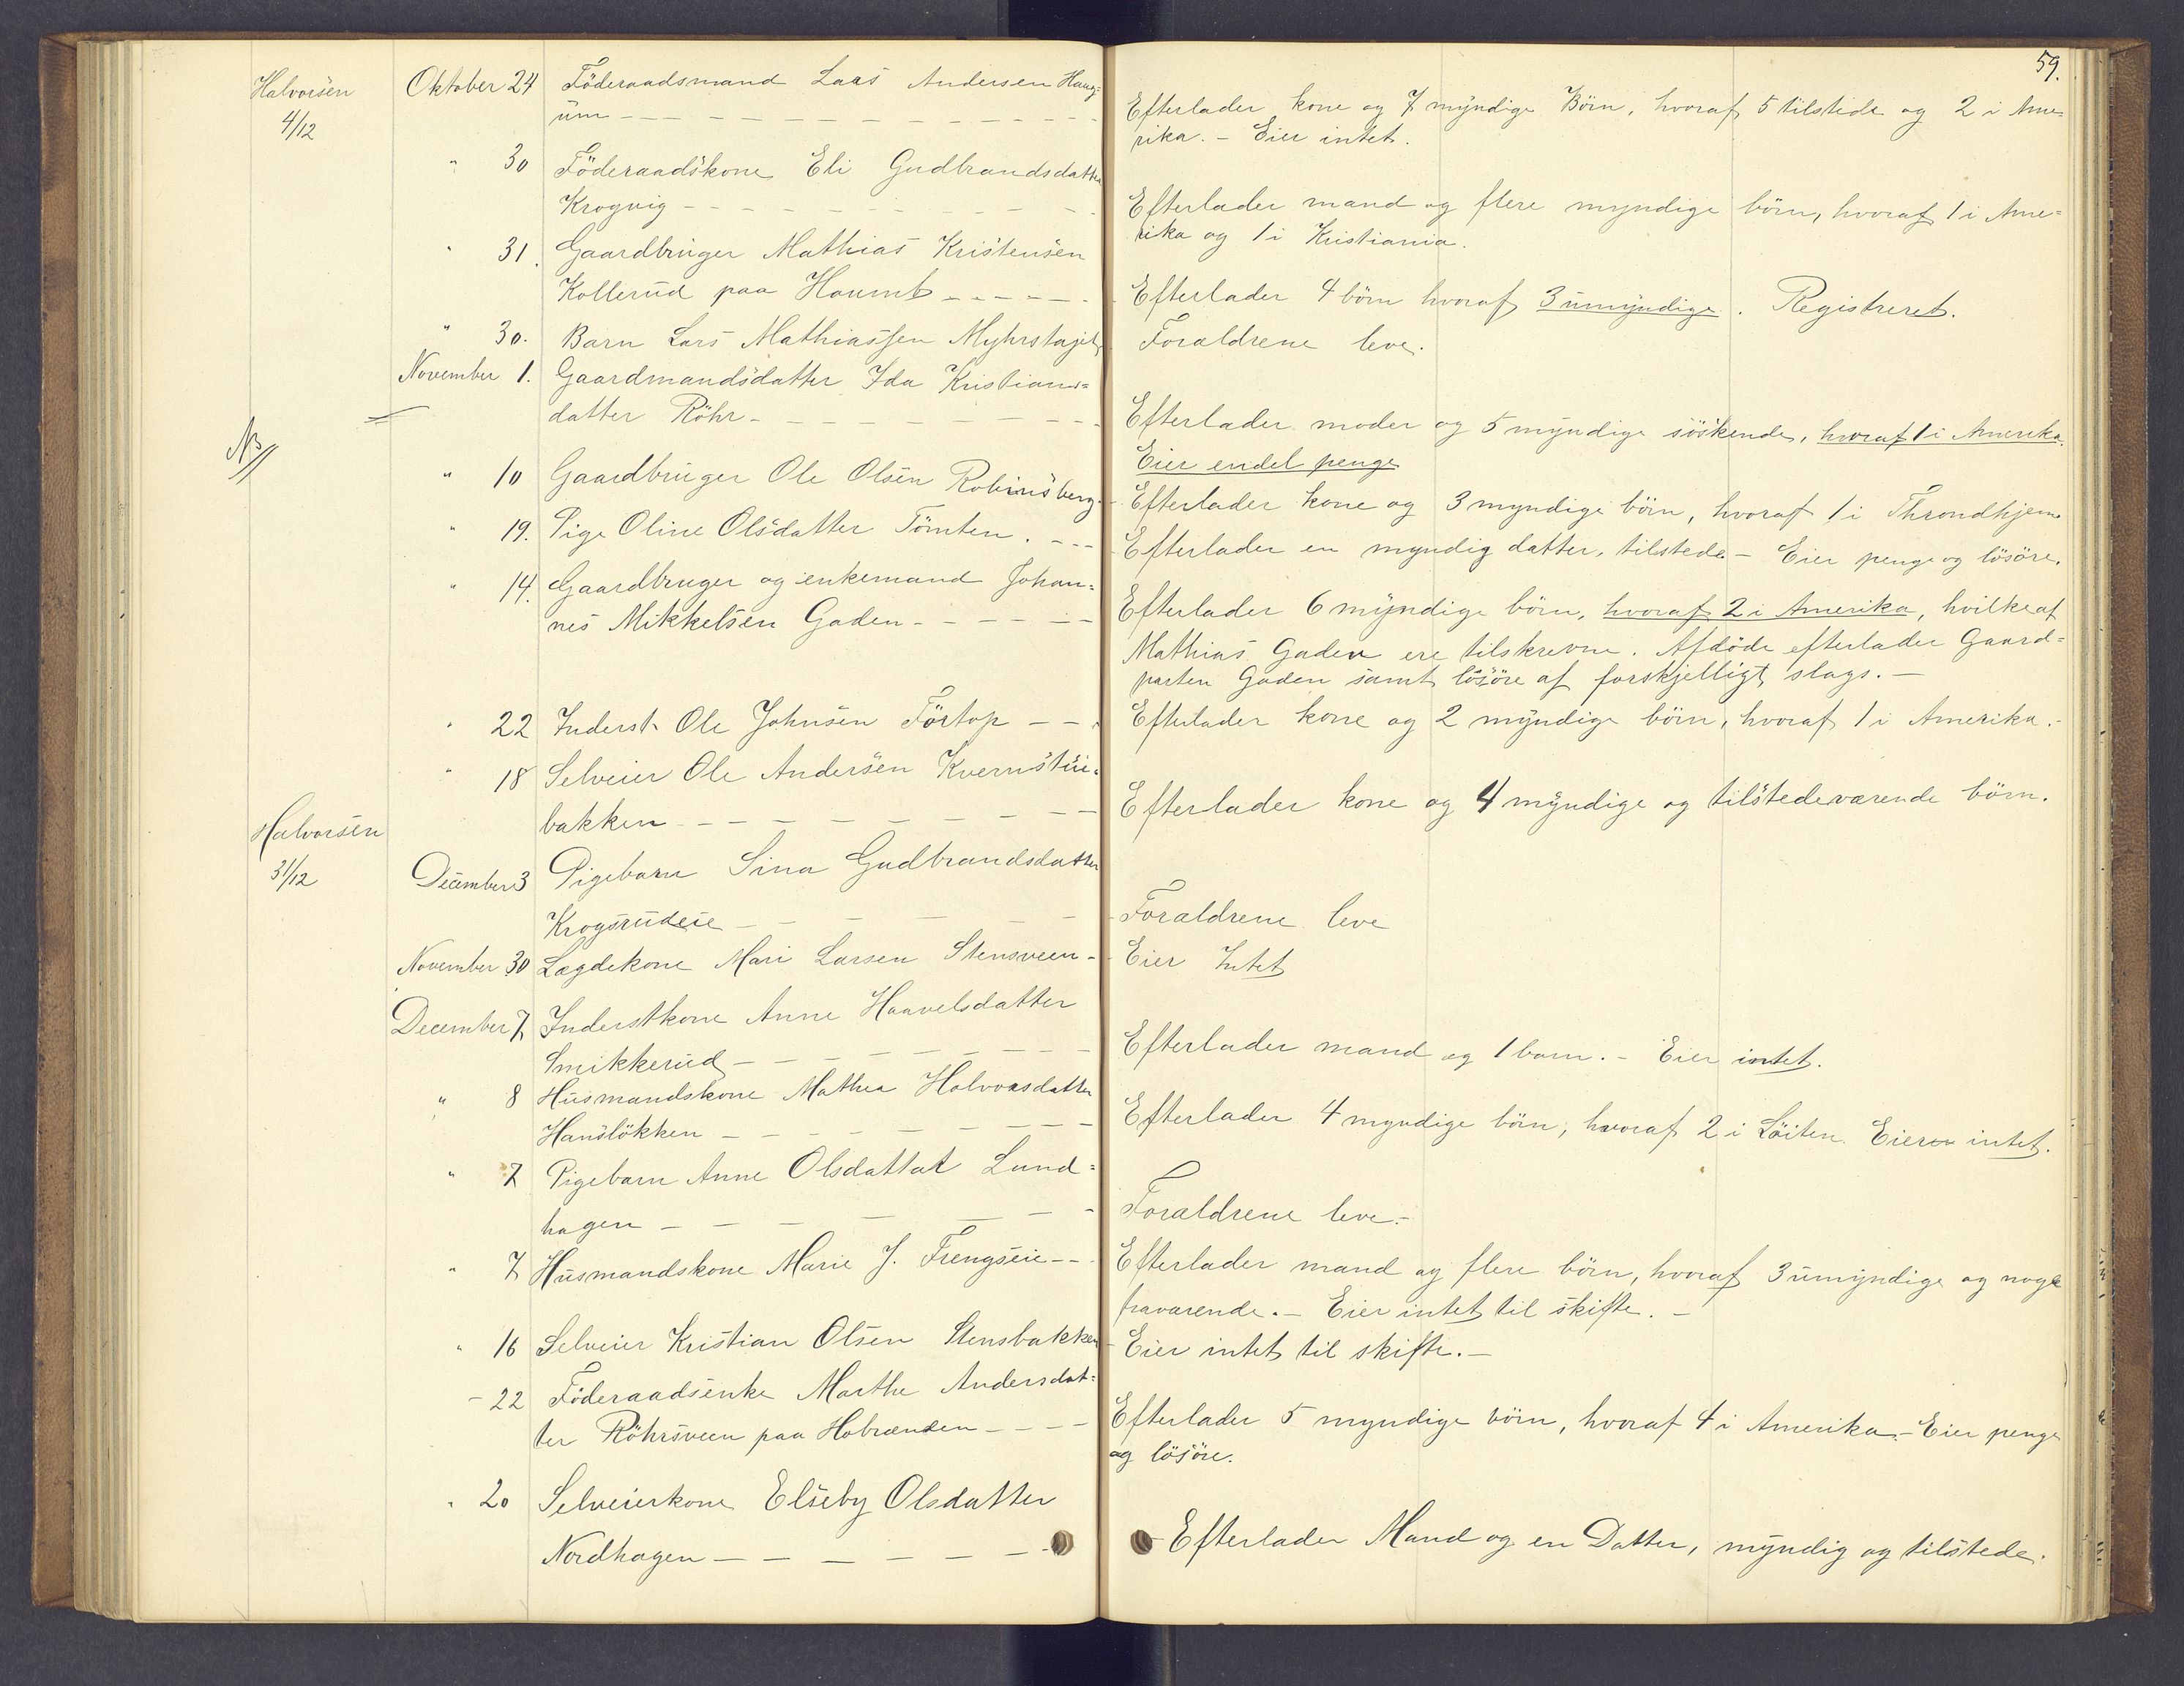 59.
Halvorsen
4/12
Oktober 24 Föderaadsmand Laas Andersen Haug-
um
Efterlader kone og 7 myndige Börn, hvoraf 5 tilstede og 2 i Ame-
rika. - Eier intet.
" 30 Föderaadskone Eli Gudbrandsdatter
Krogvig
Efterlader mand og flere myndige börn, hvoraf 1 i Ame-
rika og 1 i Kristiania.
" 31. Gaardbruger Mathias Kristensen
Kollerud paa
Efterlader 4 börn hvoraf 3 umyndige. Registreret.
" 30. Barn Lars Mathiassen
Foraldrene leve.
November 1. Gaardmandsdatter Ida Kristians-
datter Röhr
Efterlader moder og 5 myndige söskende, hvoraf 1 i Amerika.
Eier endel penge
NB
" 10 Gaardbruger Ole Olsen Robinsberg
Efterlader kone og 3 myndige börn, hvoraf 1 i Throndhjem
" 19. Pige Oline Olsdatter Tömten.
Efterlader en myndig datter, tilstede - Eier penge og lösöre.
" 14. Gaardbruger og enkemand Johan-
nes Mikkelsen Gaden
Efterlader 6 myndige börn, hvoraf 2 i Amerika, hvilke af
Mathias Gaden ere tilskrevne. Afdöde efterlader Gaard-
parten Gaden samt lösöre af forskjelligt slags. -
" 22 Inderst Ole Johnsen Förtop
Efterlader kone og 2 myndige börn, hvoraf 1 i Amerika.
" 18 Selveier Ole Andersen Kvernstu-
bakken
Efterlader kone og 4 myndige og tilstedeværende börn.
Halvorsen
31/12
December 3 Pigebarn Sina Gudbrandsdatter
Krogsrudeie
Foraldrene leve
November 30 Lægdekone Mari Larsen Stensveen
Eier Intet
December 7 Inderstkone Anne Haavelsdatter
Smikkerud
Efterlader mand og 1 barn. - Eier intet.
" 8 Husmandskone Mathea Halvorsdatter
Hanslökken
Efterlader 4 myndige börn, hvoraf 2 i Löiten. Eier intet.
" 7 Pigebarn Anne Olsdattat Lund-
hagen
Foraldrene leve.
" 7 Husmandskone Marie J. Frengseie
Efterlader mand og flere börn, hvoraf 3 umyndige og nogle
fraværende. - Eier intet til skifte. -
" 16 Selveier Kristian Olsen Stensbakken
Eier intet til skifte. -
- 22 Föderaadsenke Marthe Andersdat-
ter Röhrsveen paa Hobrænden
Efterlader 5 myndige börn, hvoraf 4 i Amerika - Eier penge
og lösöre.
" 20 Selveierkone Elseby Olsdatter
Nordhagen
Efterlader Mand og en Datter, myndig og tilstede.